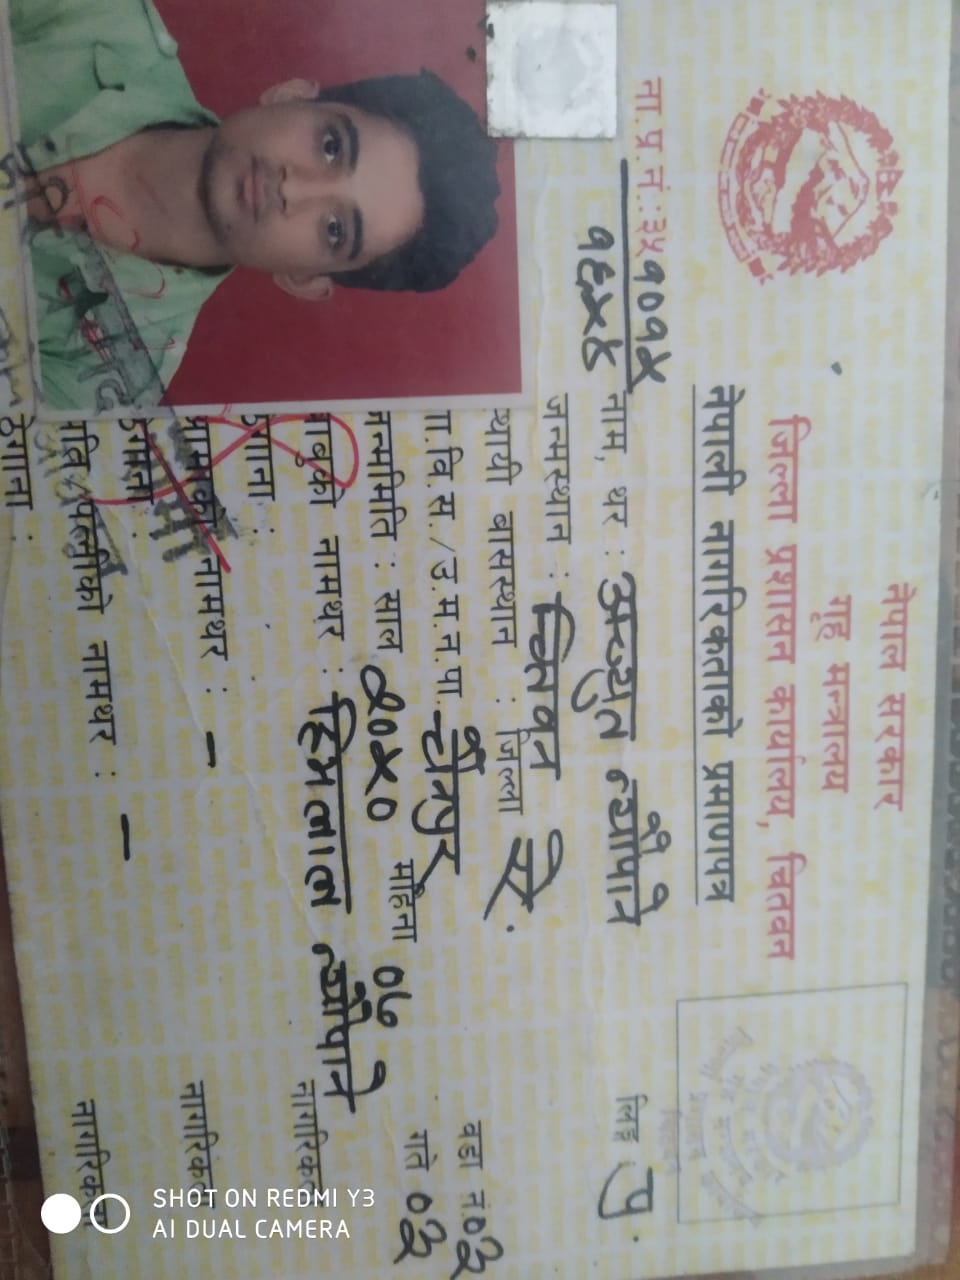 नेपाल सरकार
गृह मन्त्रालय
जिल्ला प्रशासन कार्यालय, चितवन
नेपाली नागरिकताको प्रमाणपत्र
ना.प्र.नं.:३५१०१५
१६५४
नाम, थर : अच्यूत न्यौपाने लिङ्ग पु.
जन्मस्थान : चितवन
स्थायी बासस्थान : जिल्ला ऐ.
गा.वि.स./उ.म.न.पा. वडा नं ०३
जन्ममिति : साल २०५० महिना ०७ गते ०३
बाबुको नामथर : हिमलाल न्यौपाने नागरिकता
ठेगाना :
आमाको नामथर : - नागरिकता
ठेगाना :
पति/पत्नीको नामथर : - नागरिकता
ठेगाना :
SHOT ON REDMI Y3
AI DUAL CAMERA